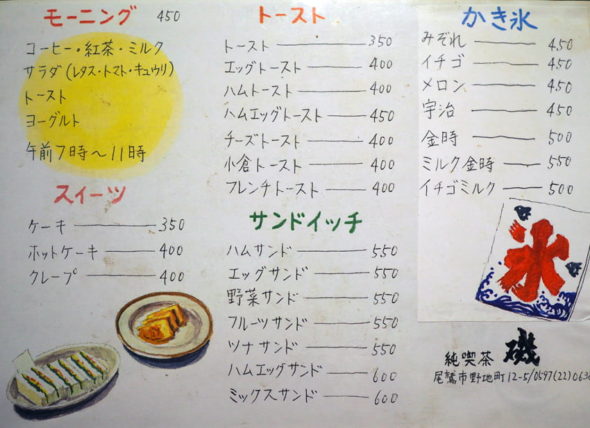 モーニング 450
コーヒー・紅茶・ミルク
サラダ(レタス・トマト・キュウリ)
トースト
ヨーグルト
午前7時～11時
スイーツ
ケーキ 350
ホットケーキ 400
クレープ 400
トースト
トースト 350
エッグトースト 400
ハムトースト 400
ハムエッグトースト 450
チーズトースト 400
小倉トースト 400
フレンチトースト 400
サンドイッチ
ハムサンド 550
エッグサンド 550
野菜サンド 550
フルーツサンド 550
ツナサンド 550
ハムエッグサンド 600
ミックスサンド 600
かき氷
みぞれ 450
イチゴ 450
メロン 450
宇治 450
金時 500
ミルク金時 550
イチゴミルク 500
氷
純喫茶 磯
尾鷲市野地町12-5/0597(22)063